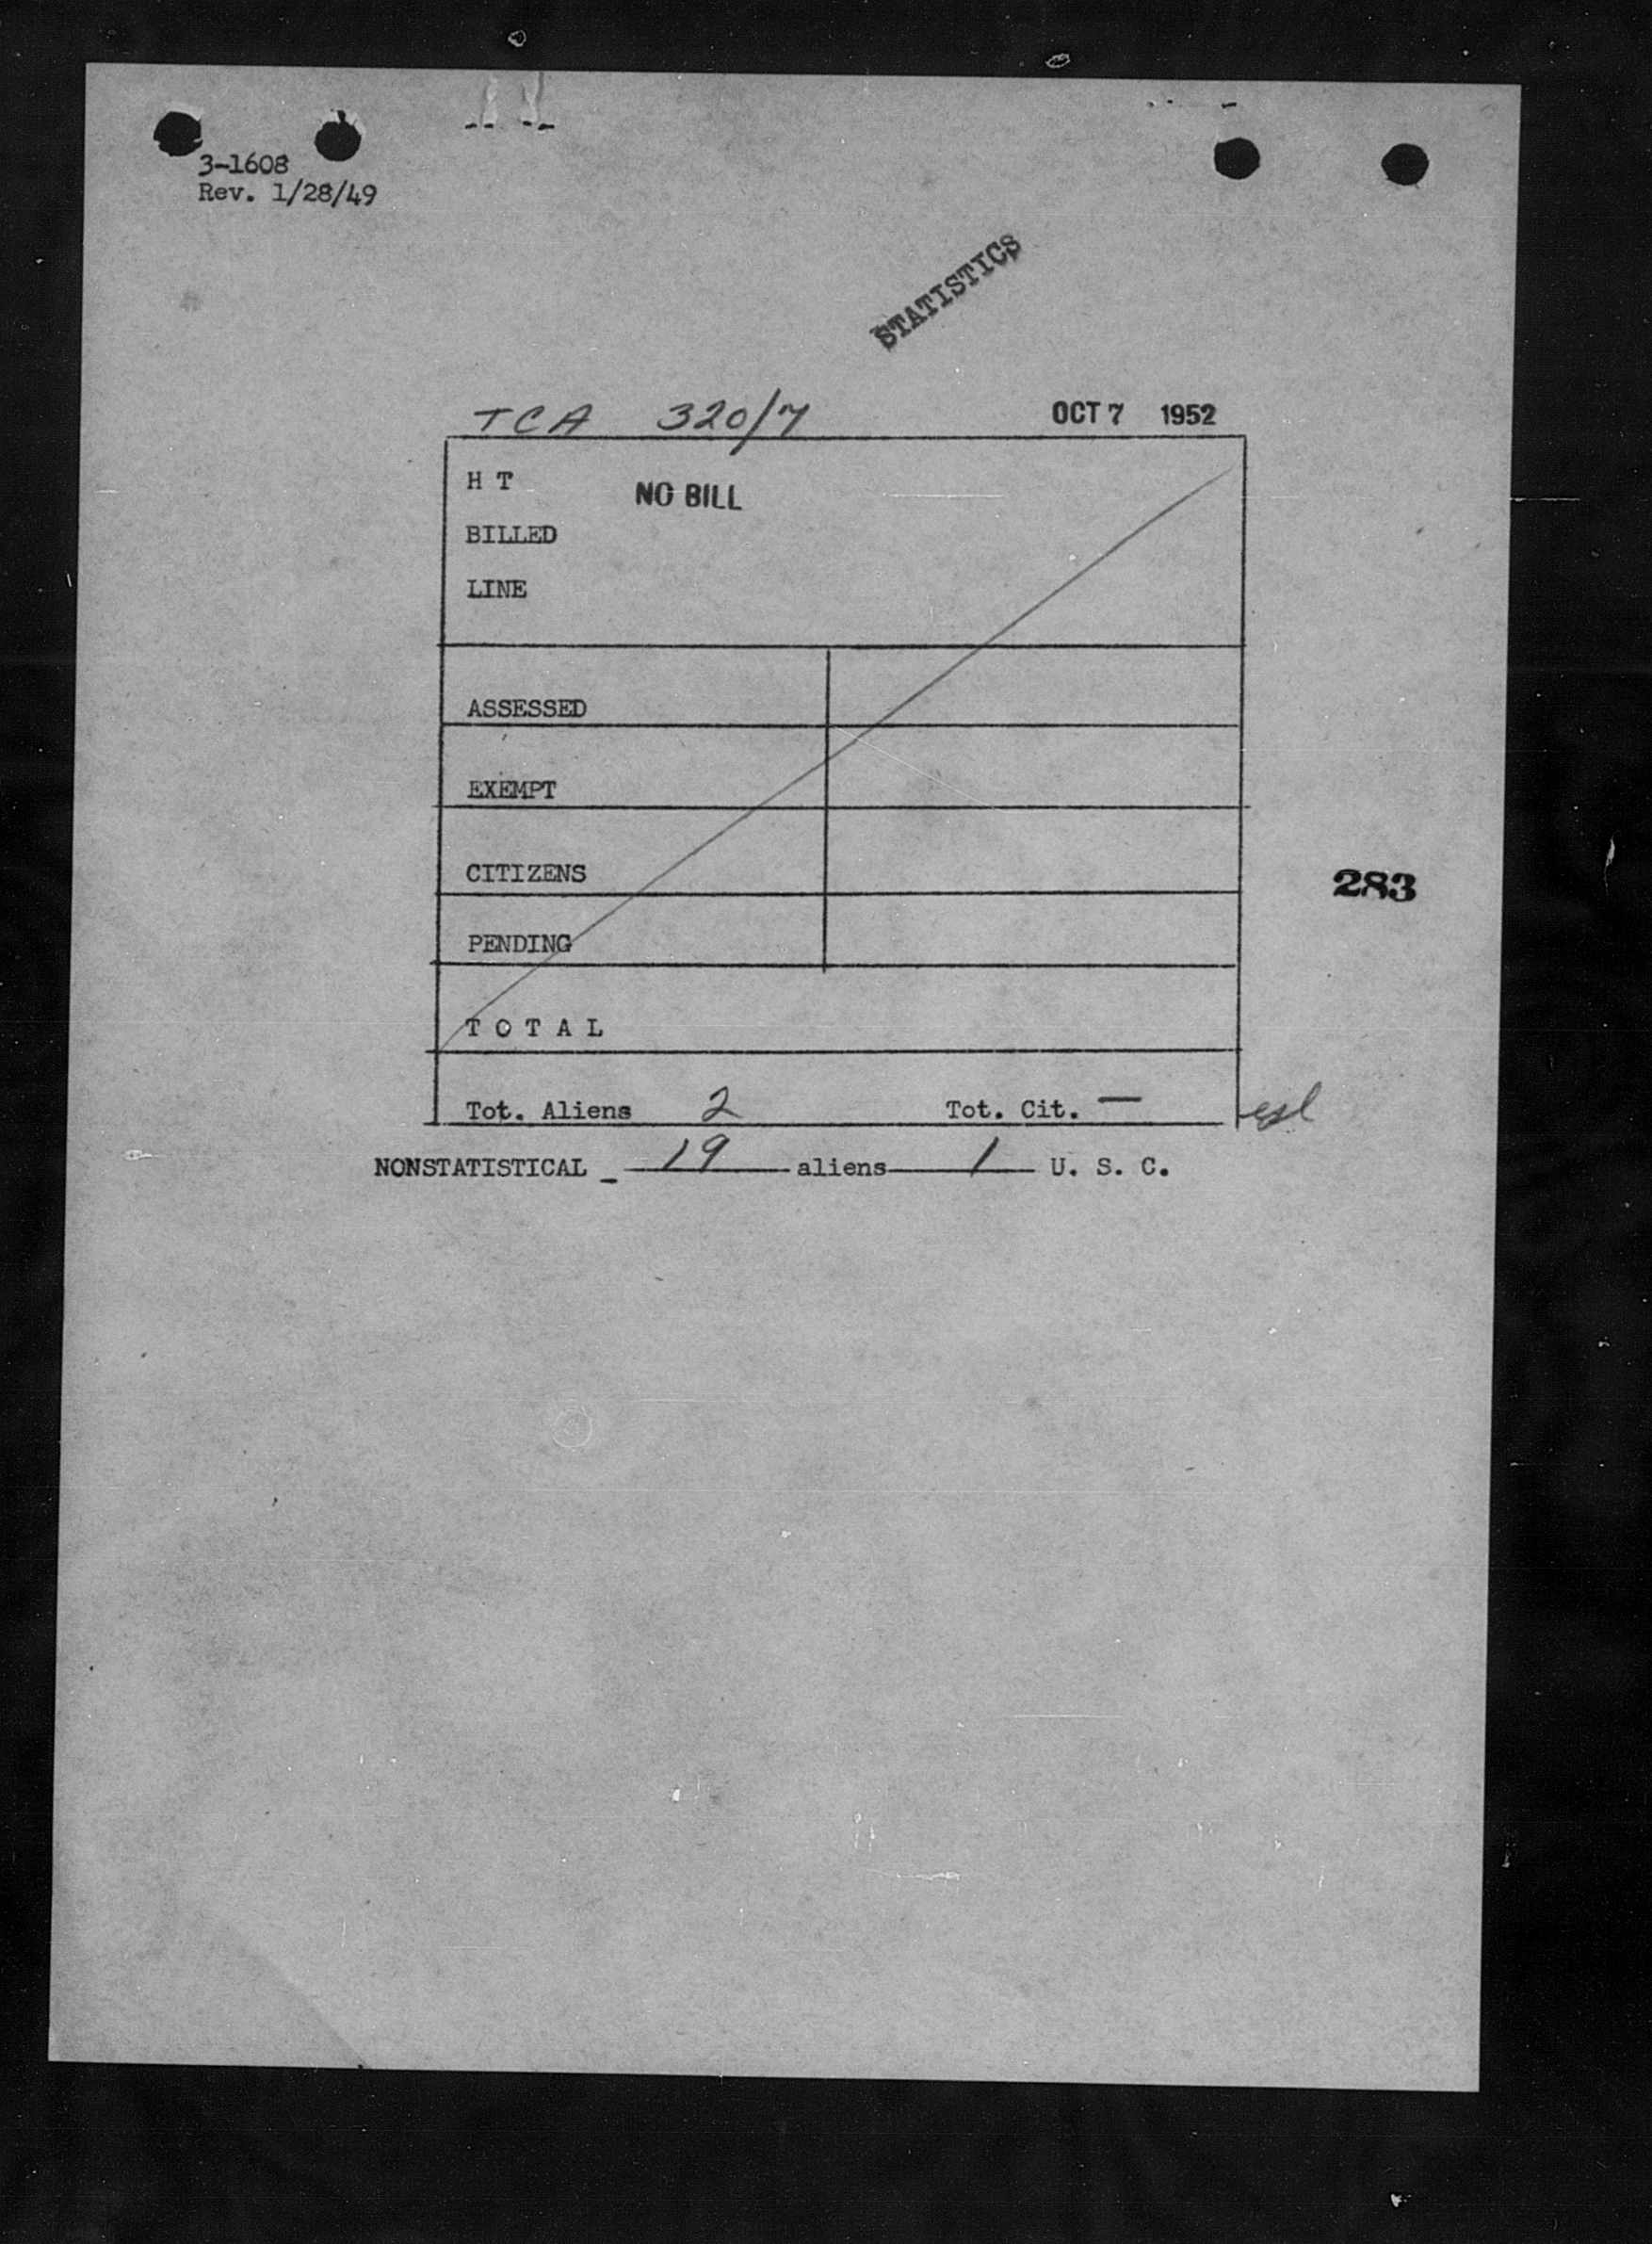 3-1608
Rev. 1/28/49
STATISTICS
TCA 320/7 OCT 7 1952
H T NO BILL
BILLED
LINE
ASSESSED
EXEMPT
CITIZENS
283
PENDING
T O T A L
Tot. Aliens 2 Tot. Cit. —
NONSTATISTICAL - 19 aliens 1 U. S. C.